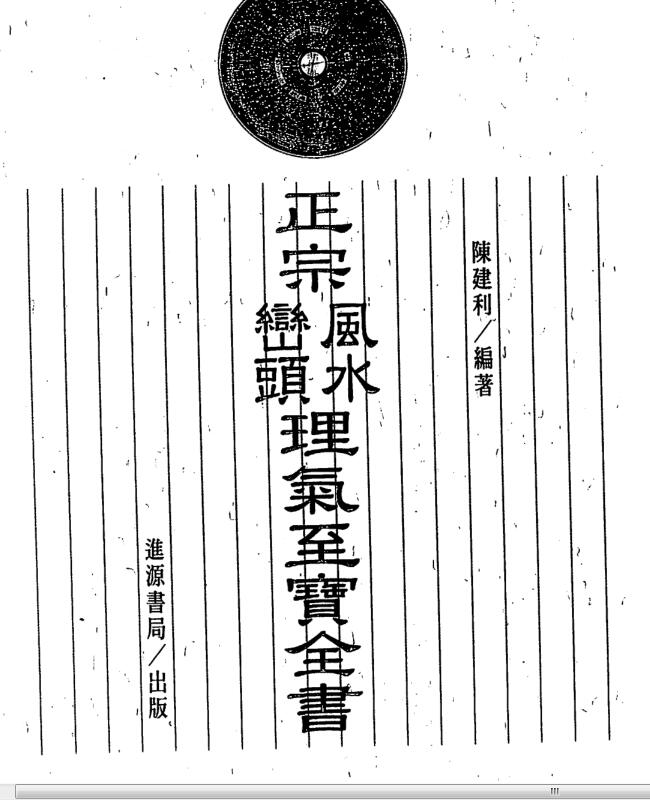 陳建利／編著
正宗風水巒頭理氣至寶全書
進源書局／出版